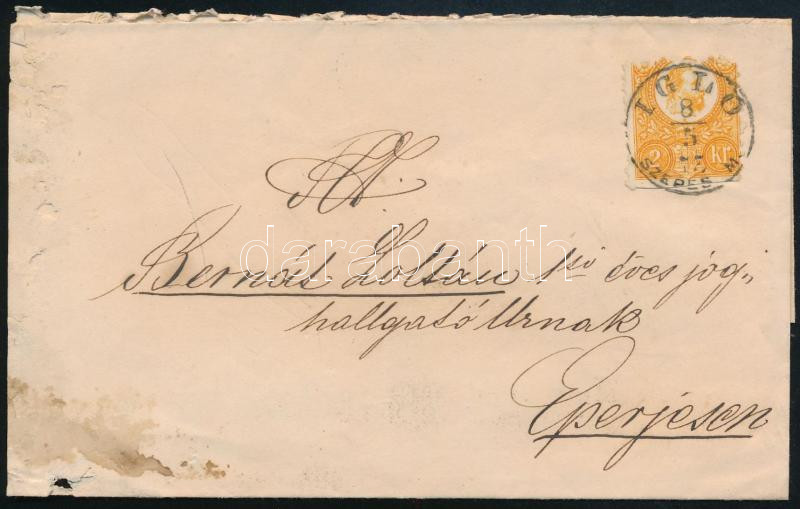 IGLÓ
8
5
SZEPES M
2 kr.
T. Cz.
darabanth
Bernát Zoltán 1ső éves jog„
hallgató Urnak
Eperjesen